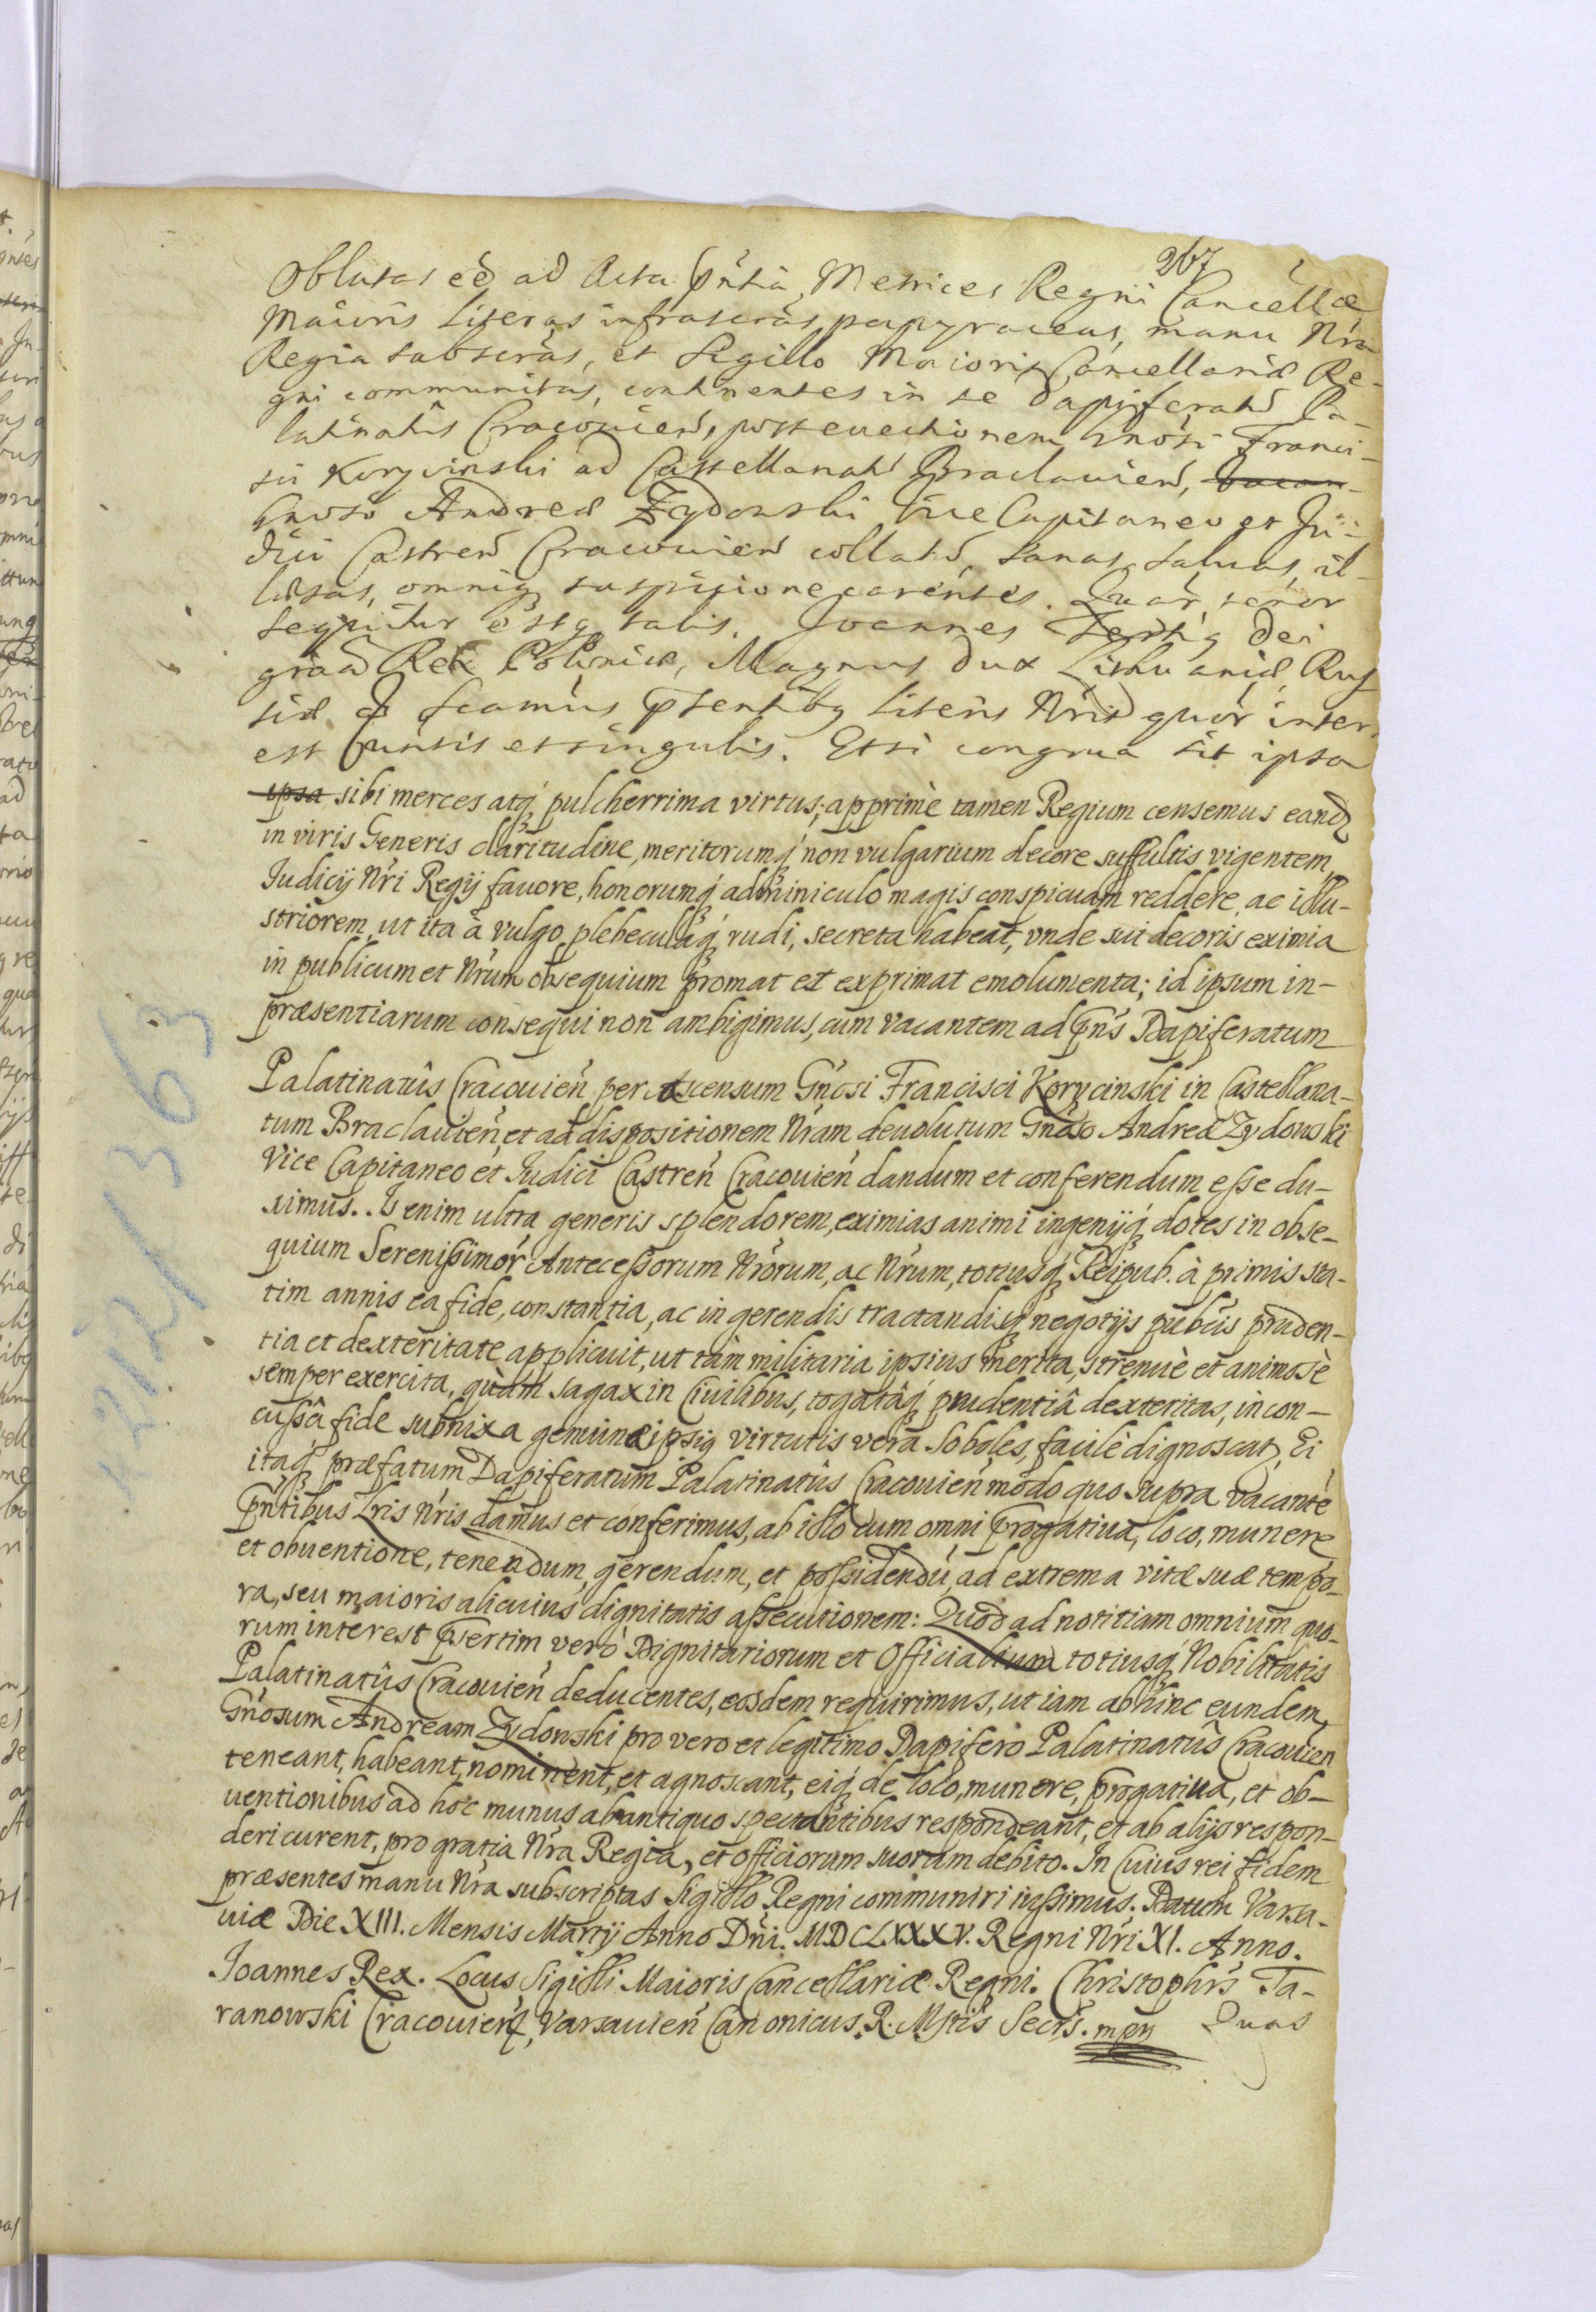 267
Oblatas eê ad Acta p̃ntia Metrices Regni Cancellæ
Maioris Literas infrascr̃as papyraceas, manu Nr̃a
Regia subscr̃as, et Sigillo Maioris Cancellariæ Re-
gni communitas, continentes in se Dapiferatũ Pa-
latinatus Cracovien̄, post evectionem Gnosi Franci-
sci Korycinski ad Castellanatũ Braclavien̄, vacan-
Gnoso Andreæ Zydowski Vice Capitaneo et Ju-
dici Castren̄ Cracovien̄ collatũ, sanas, salvas, il-
læsas, omniq; suspicione carentes. Quar̃ tenor
sequitur estq; talis. Joannes Tertiq; Dei
gr̃aa Rex Poloniæ, Magnus Dux Lithuaniæ, Rus-
siæ &. Significamus p̃sentibq; Literis Nr̃is quor̃ inter-
est Universis et singulis. Etsi congrua sit ipsa
ipsa sibi merces atq́; pulcherrima virtus; apprimè tamen Regium censemus eand̃
in viris Generis claritudine, meritorumq́; non vulgarium decore suffultis vigentem,
Iudicij Nr̃i Regij fauore, honorumq́; adminiculo magis conspicuam reddere, ac illu-
striorem, ut ita à vulgo, plebeculaq́; rudi, secreta habeat, vnde sui decoris eximia
in publicum et Nr̃um obsequium promat et exprimat emolumenta; id ipsum in-
præsentiarum consequi non ambigimus, cum vacantem ad p̃ns Dapiferatum
Palatinatûs Cracouien̄ per ascensum Gn̄osi Francisci Korycinski in Castellana-
tum Braclauien̄ et ad dispositionem Nr̃am deuolutum Gn̄oso Andreæ Zydowski
Vice Capitaneo et Iudici Castren̄ Cracouien̄ dandum et conferendum esse du-
ximus. Is enim ultra generis splendorem, eximias animi ingenijq́; dotes in obse-
quium Serenissimor̃ Antecessorum Nr̃orum, ac Nr̃um, totiusq́; Reipub. à primis sta-
tim annis ea fide, constantia, ac in gerendis tractandisq́; negotijs pub̃cis pruden-
tia et dexteritate applicuit, ut tàm militaria ipsius merita, strenuè et animosè
semper exercita, quàm sagax in Ciuilibus, togatâq́; prudentiâ dexteritas, incon-
cussâ fide subnixa genuinæ ipsiq; virtutis vera Soboles, facilè dignoscat̃. Ei
itaq́; præfatum Dapiferatum Palatinatûs Cracouien̄ modo quo supra vacantẽ
p̃ntibus Lr̃is Nr̃is damus et conferimus, ab illo cum omni p̃rogatiua, loco, munere
et obuentione, tenendum, gerendum, et possidendũ, ad extrema vitæ suæ tempo-
ra, seu maioris alicuius dignitatis assecutionem: Quod ad notitiam omnium quo-
rum interest p̃sertim verò Dignitariorum et Officialium totiusq́; Nobilitatis
Palatinatûs Cracouien̄ deducentes, eosdem requirimus, ut iam abhinc eundem
Gn̄osum Andream Zydowski pro vero et legitimo Dapifero Palatinatûs Cracouien̄
teneant, habeant, nominent, et agnoscant, eiq́; de loco, munere, p̃rogatiua, et ob-
uentionibus ad hoc munus ab antiquo spectantibus respondeant, et ab alijs respon-
deri curent, pro gratia Nr̃a Regia, et officiorum suorum debito. In Cuius rei fidem
præsentes manu Nr̃a subscriptas Sigillo Regni communiri iussimus. Datum Varsa-
uiæ Die XIII. Mensis Martij Anno Dn̄i. MDCLXXXV. Regni Nr̃i XI. Anno.
Joannes Rex. Locus Sigilli Maioris Cancellariæ Regni. Christophr̃s Ta-
ranowski Cracouien̄, Varsauien̄ Canonicus, R. Mt̃is Secr̃s. mpp Quas